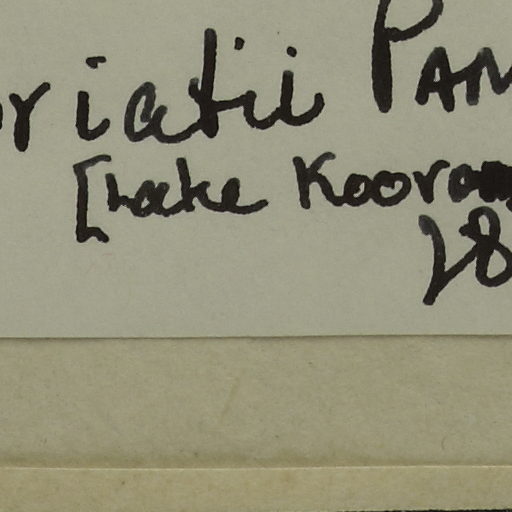 oriatii PAM
[Lake Kooram
28